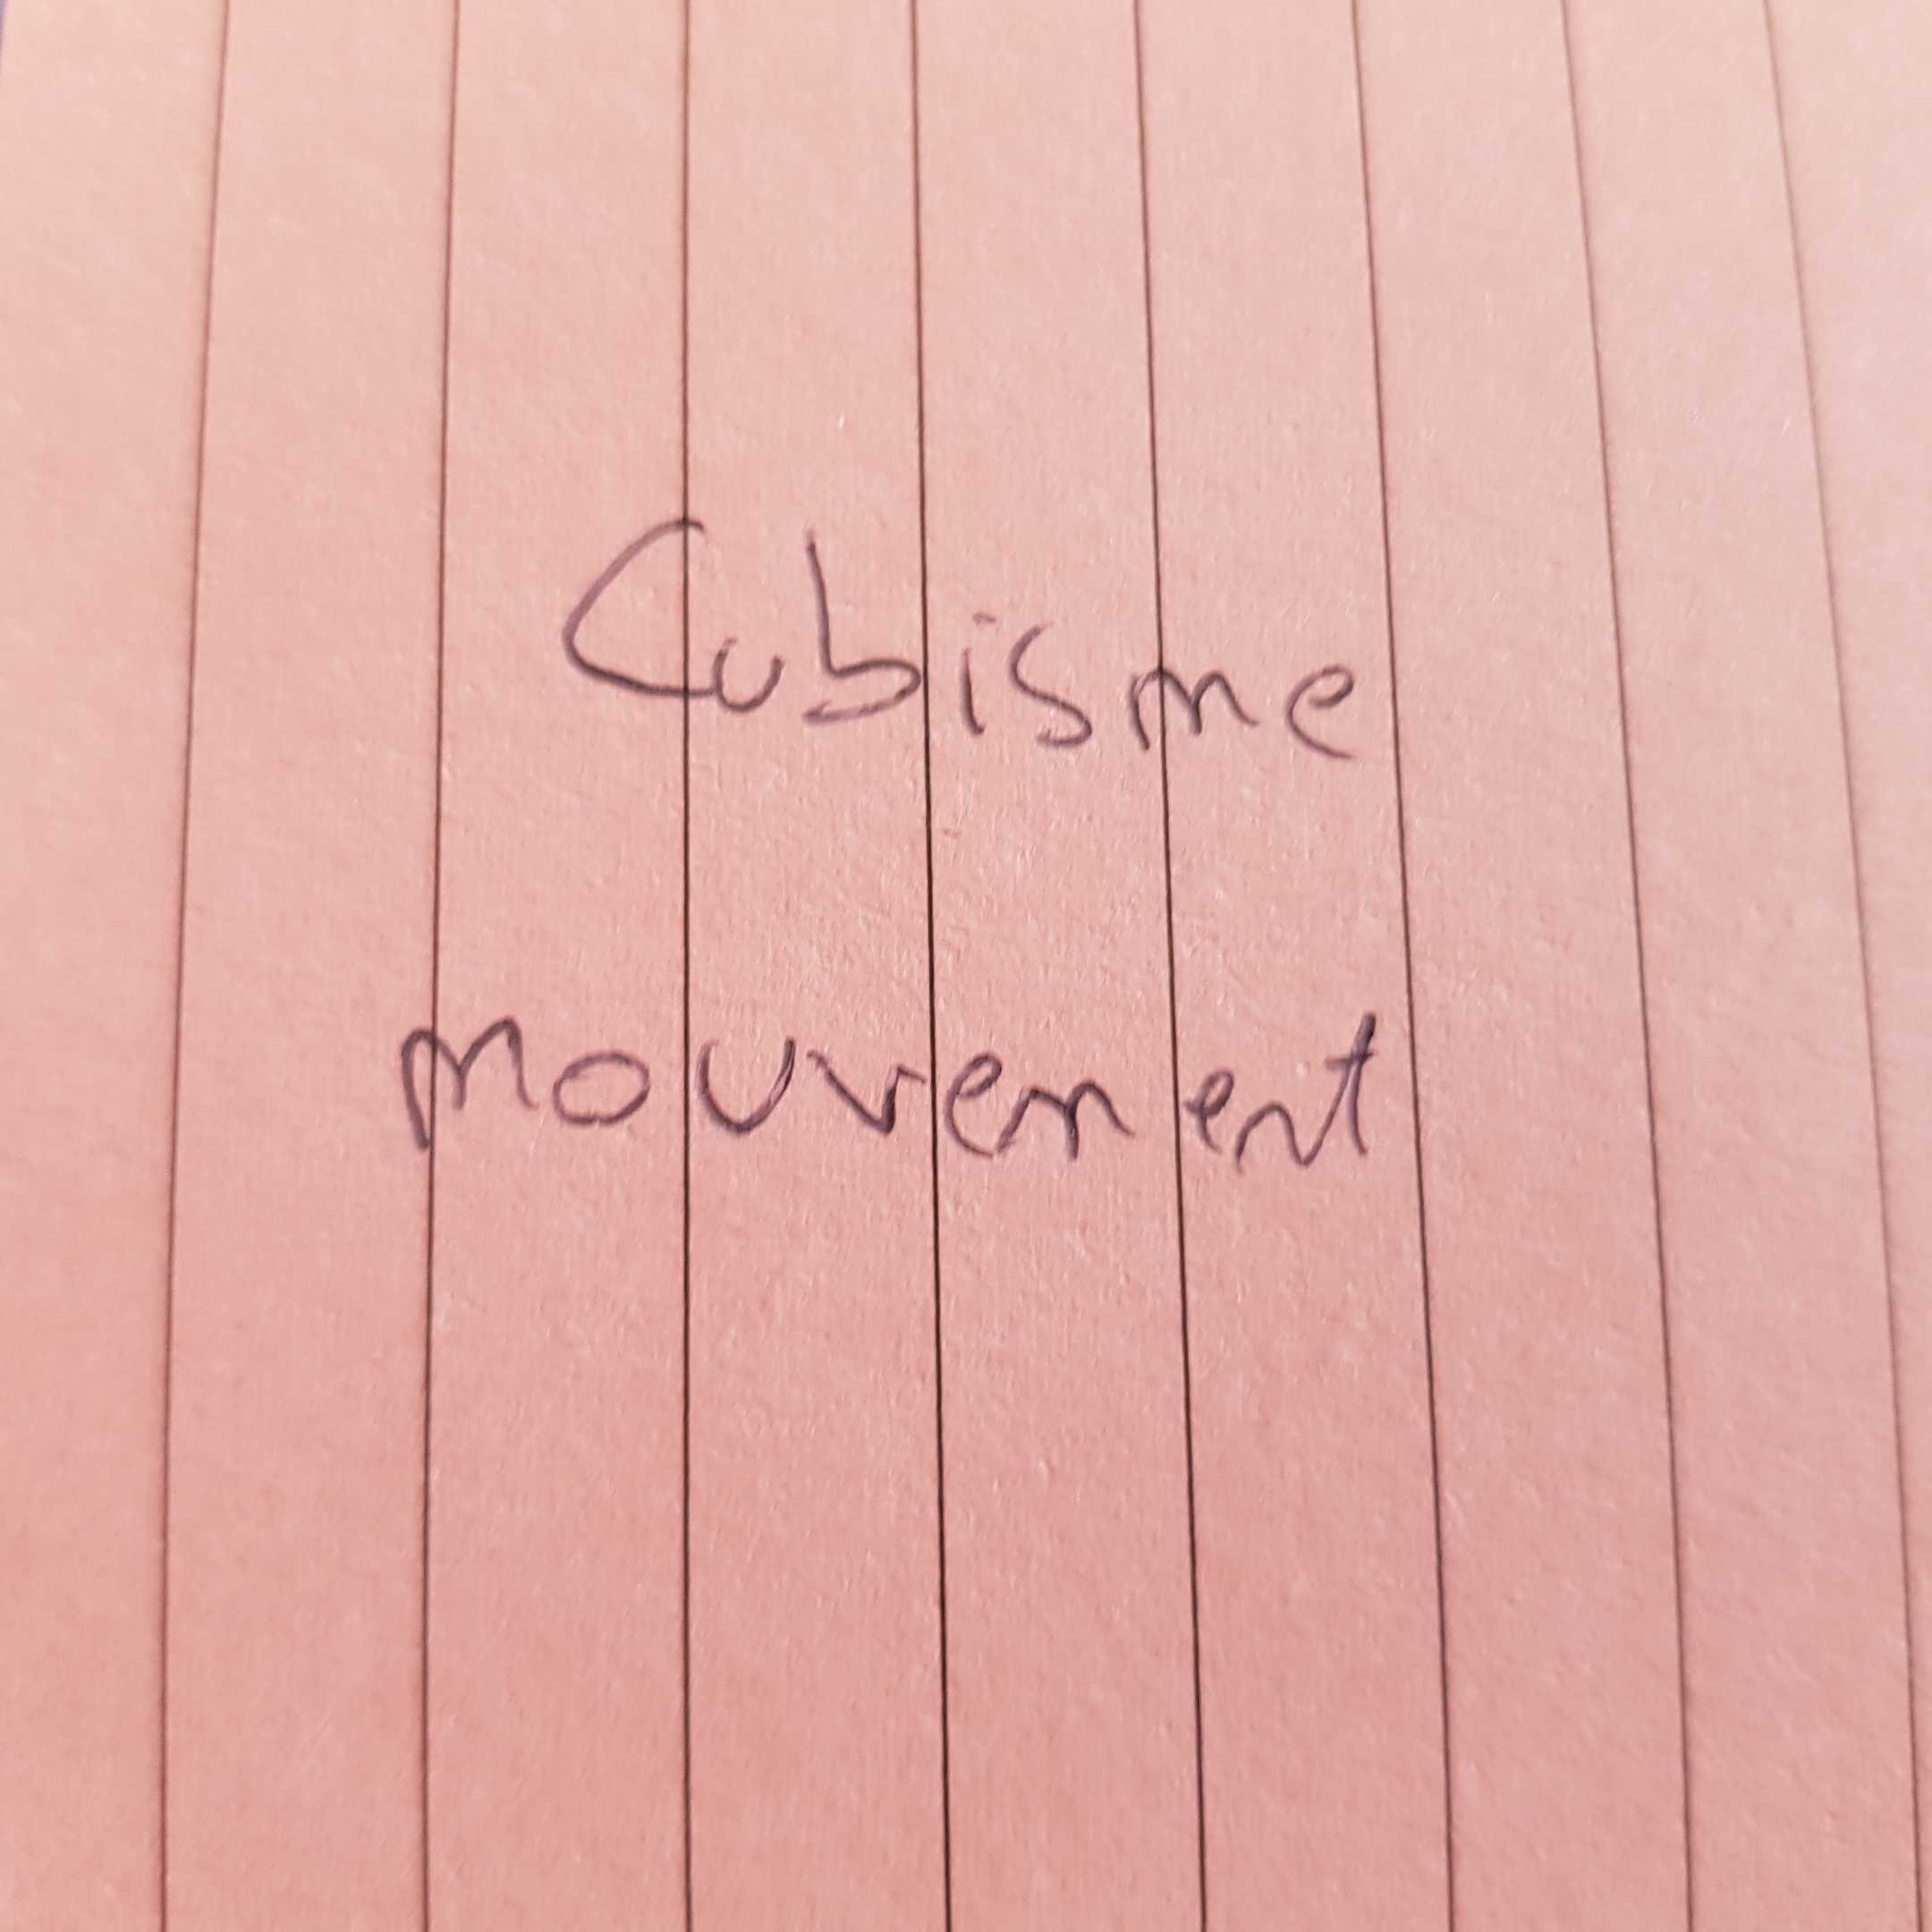 Cubisme
mouvement